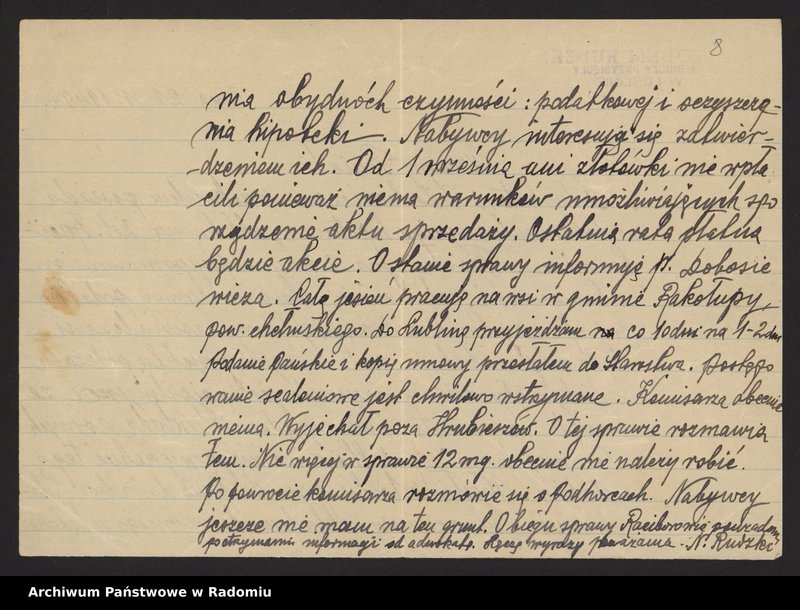 8
nia obydwóch czynności: podatkowej i oczyszczą-
nia hipoteki. Nabywcy interesują się zatwier-
-dzeniem ich. Od 1 września ani złotówki nie wpła
cili ponieważ niema warunków umożliwiających spo
rządzenie aktu sprzedaży. Ostatnią ratą płatną
będzie akcie. O stanie sprawy informuję p. Dobosie
wicza. Całą jesień pracuję na wsi w gminie Rakołupy,
pow. chełmskiego. Do Lublina przyjeżdżam na co 10 dni na 1-2 dni
Podanie Pańskie i kopię umowy przesłałem do Starostwa. Postępo
wanie scaleniowe jest chwilowo wstrzymane. Komisarza obecnie
niema. Wyjechał poza Hrubieszów. O tej sprawie rozmawia
łem. Nic więcej w sprawie 12 mg. obecnie nie należy robić.
Po powrocie komisarza rozmówię się o Podhorcach. Nabywcy
jeszcze nie mam na ten grunt. O biegu sprawy Raciborowic powiadomię
po otrzymaniu informacji od adwokata. Łączę wyrazy poważania - N. Rudzki
Archiwum Państwowe w Radomiu